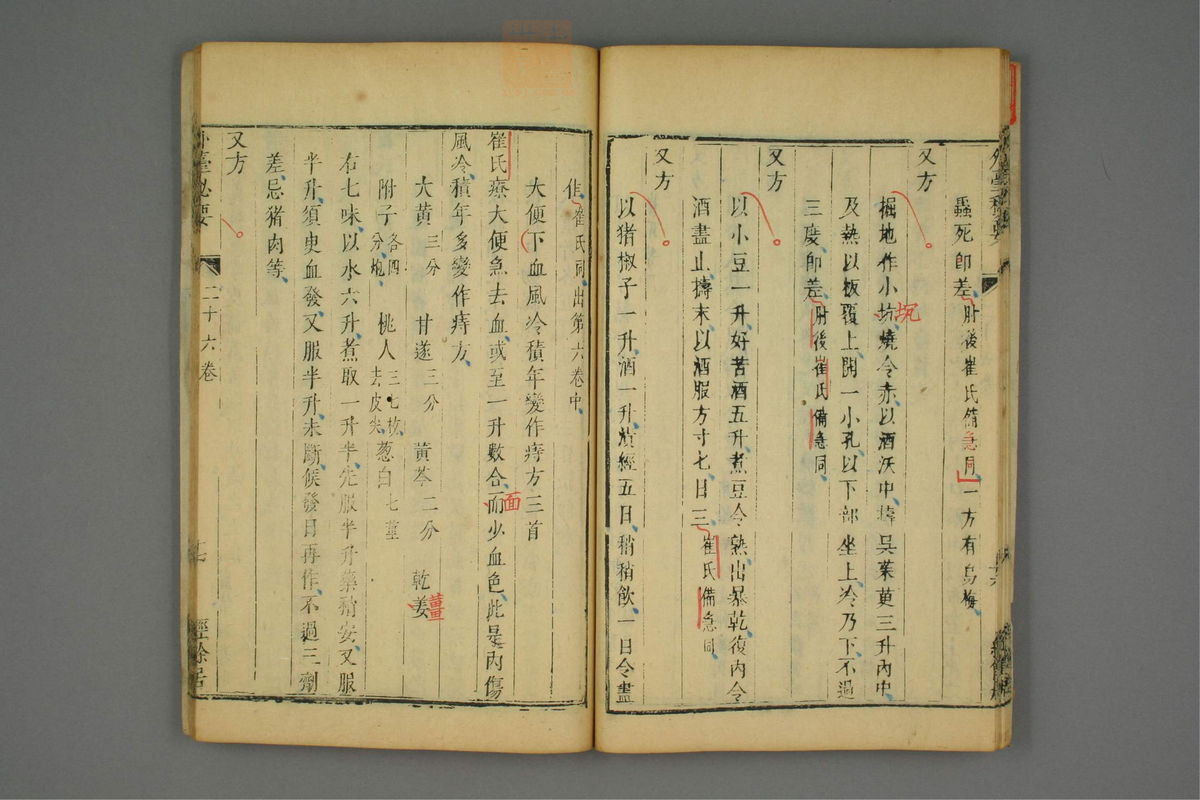 蟲死卽差肘後崔氏備急同一方有烏梅
又方
掘地作小坑燒令赤以酒沃中擣吳茱萸三升內中
及熱以板覆上開一小孔以下部坐上冷乃下不過
三度卽差肘後崔氏備急同
又方
以小豆一升好苦酒五升煮豆令熟出暴乾復內令
酒盡止擣末以酒服方寸匕日三崔氏備急同
又方
以猪椒子一升酒一升漬經五日稍稍飲一日令盡
崔氏同出第六卷中
大便下血風冷積年變作痔方三首
崔氏療大便急去血或至一升數合而少血色此是內傷
風冷積年多變作痔方
大黃三分 甘遂三分 黃芩二分 乾姜
附子各四分炮 桃人三七枚去皮尖 葱白七莖
右七味以水六升煮取一升半先服半升藥稍安又服
半升須臾血發又服半升未斷候發日再作不過三劑
差忌猪肉等
又方
外臺秘要
二十六卷
經餘居
坑
面
薑